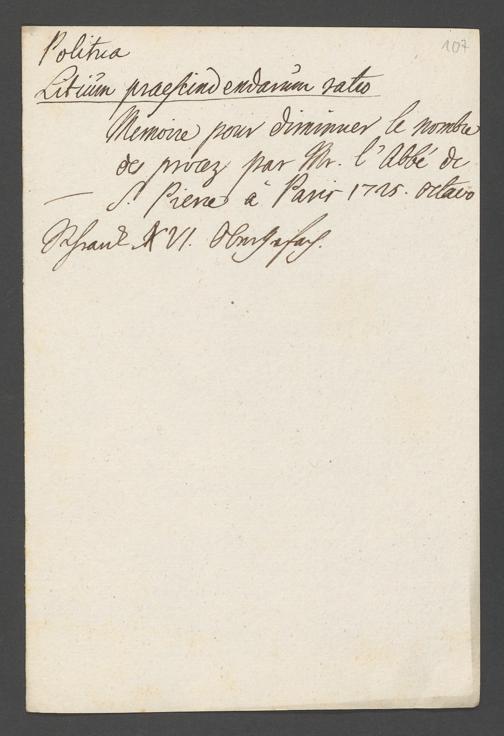 107
Politica
Litium praescindendarum ratio
Memoire pour diminuer le nombre
des procez par Mr. l'Abbé de
— S. Pierre à Paris 1725. octavo
Schrank XVI.